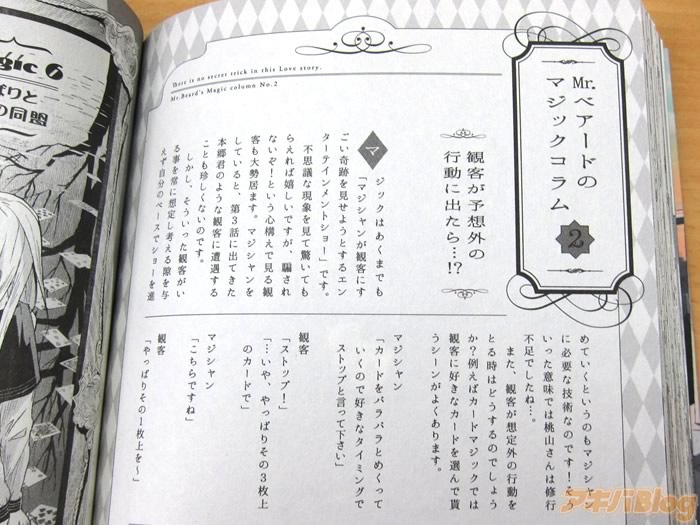 There is no secret trick in this Love story.
Mr.Beard's Magic column No.2
Mr.ベアードの
マジックコラム
2
観客が予想外の
行動に出たら…!?
マ
ジックはあくまでも
「マジシャンが観客にす
ごい奇跡を見せようとするエン
ターテインメントショー」です。
不思議な現象を見て驚いても
らえれば嬉しいですが、騙され
ないぞ!という心構えで見る観
客も大勢居ます。マジシャンを
していると、第3話に出てきた
本郷君のような観客に遭遇する
ことも珍しくないのです。
しかし、そういった観客がい
る事を常に想定し考える隙を与
えず自分のペースでショーを進
めていくというのもマジシャン
に必要な技術なのです!そう
いった意味では桃山さんは修行
不足でしたね…。
また、観客が想定外の行動を
とる時はどうするのでしょう
か?例えばカードマジックでは
観客に好きなカードを選んで貰
うシーンがよくあります。
マジシャン
「カードをパラパラとめくって
いくので好きなタイミングで
ストップと言って下さい」
観客
「ストップ!」
「…いや、やっぱりその3枚上
のカードで」
マジシャン
「こちらですね」
観客
「やっぱりその1枚上を〜」
gic 6
ぱりと
の同盟
アキバBlog